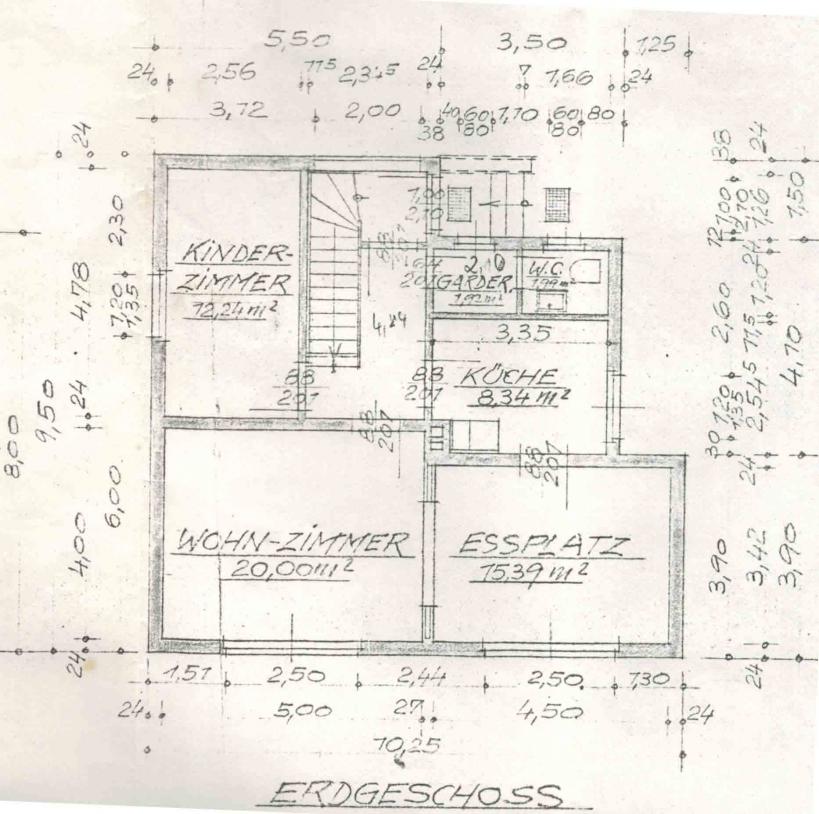 5,50 3,50 1,25
24 2,56 11⁵ 2,31⁵ 24 7 1,66 24
3,72 2,00 38 40 60/80 1,10 60/80 80
24
2,30
4,78
1,20
1,35
24
9,50
8,00
6,00
4,00
24
38
24
1,00
2,10
1,26
1,50
12
24
1,20
2,60
11,5
4,70
1,20
1,35
2,54⁵
30
24
3,90
3,42
3,90
24
1,00
2,10
KINDER-
ZIMMER
12,24 m²
88
201
2,10
GARDER.
1,92 m²
W.C.
1,99 m²
4,84
3,35
KÜCHE
8,34 m²
88
201
88
201
88
201
88
201
WOHN-ZIMMER
20,00 m²
ESSPLATZ
15,39 m²
1,51 2,50 2,44 2,50 1,30
24 5,00 27 4,50 24
10,25
ERDGESCHOSS